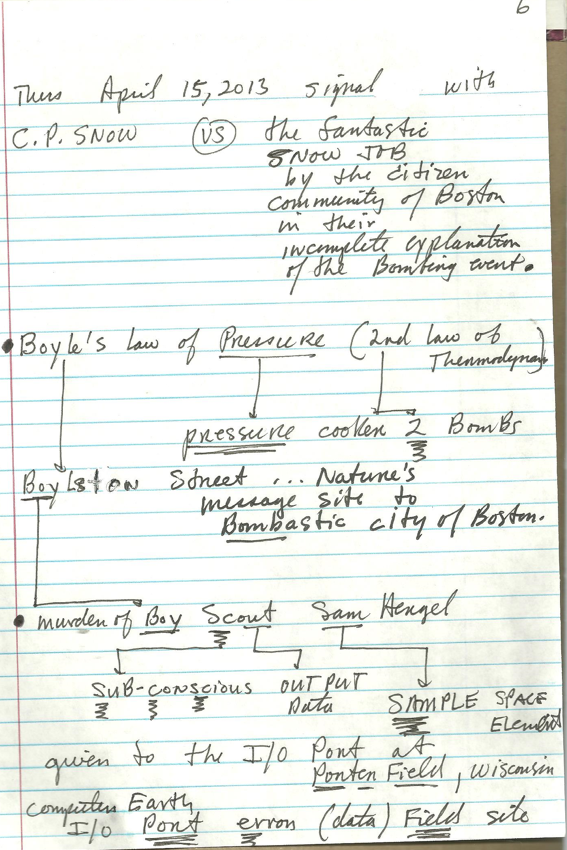 6
Thurs April 15, 2013 signal with
C.P. SNOW VS the fantastic
SNOW JOB
by the citizen
community of Boston
in their
incomplete explanation
of the Bombing event.
• Boyle's Law of Pressure (2nd law of
Thermodynam)
pressure cooker 2 Bombs
Boylston Street ... Nature's
message site to
Bombastic city of Boston.
• murder of Boy Scout Sam Hengel
SUB-CONSCIOUS OUTPUT
Data
SAMPLE SPACE
Element
given to the I/O Port at
Porter Field, Wisconsin
computer Earth
I/O Port error (data) Field site